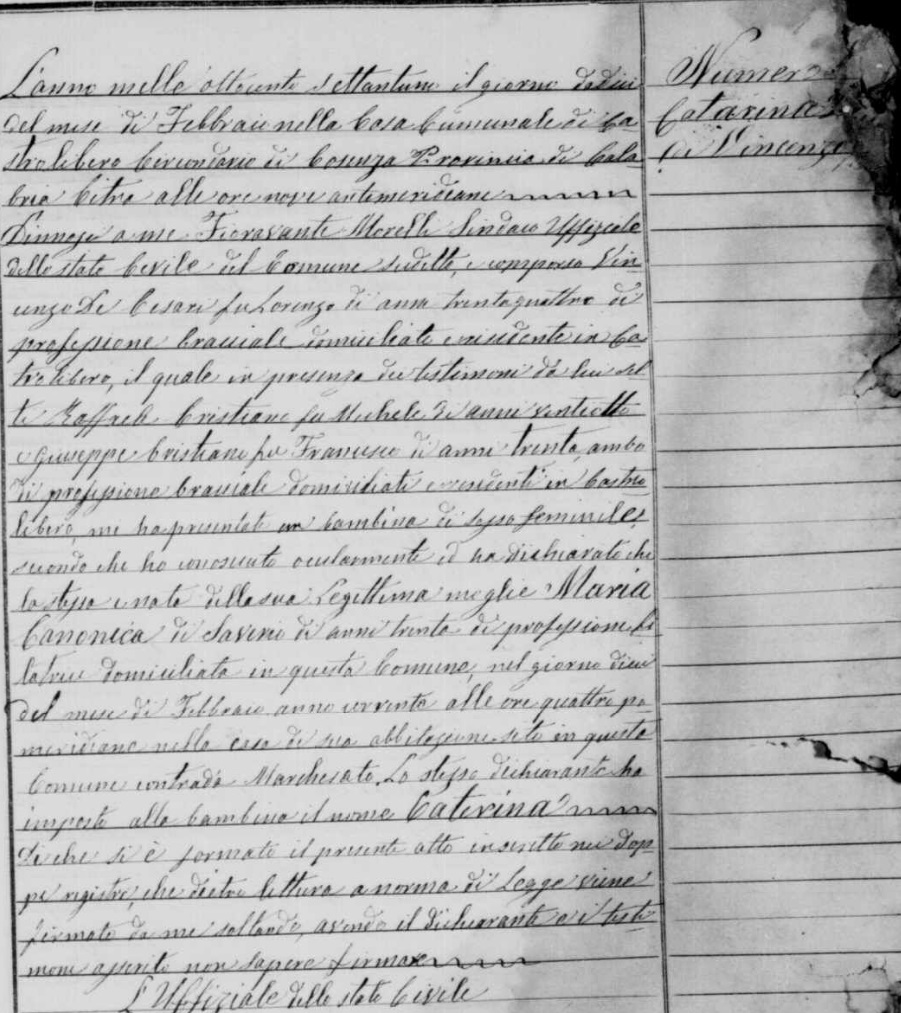 L'anno mille ottocento settantuno il giorno dodici
del mese di Febbraio nella Casa Cumunale di Ca=
strolibero Circondario di Cosenza Provincia di Cala
bria Citra alle ore nove antimeridiane
Dinnazi a me Fioravante Morelli Sindaco Uffiziale
dello stato Civile del Comune sudetto, è comparso Vin
cenzo De Cesari fu Lorenzo di anni trentaquattro di
professione bracciale domiciliato e risidente in Cas
trolibero, il quale in presenza dei testimoni da lui scel
ti Raffaele Cristiano fu Michele di anni ventiotto
e Giuseppe Cristiano fu Francesco di anni trenta, ambo
di professione bracciale domiciliati e residenti in Castro
libero, me ha presentato un bambina di sesso feminile,
secondo che ho conosciuto ocularmente ed ha dichiarato che
la stessa è nata dalla sua Legittima moglie Maria
Canonica di Saverio di anni trenta di professione fi
latrice domiciliata in questa Comune, nel giorno dieci
del mese di Febbraio anno corrente alle ore quattro po
meridiane nella casa di sua abbitazione sita in questa
Comune contrada Marchesato. Lo stesso dichiarante ha
imposto alla bambina il nome Caterina
Di che si è formato il presente atto inscritto nei dop
pi registri, che dietro lettura a norma di Legge viene
firmato da me soltando, avendo il dichiarante e i testi
moni asserito non sapere firmare
L'Uffiziale dello stato Civile
Numero
Catarina
di Vincenzo